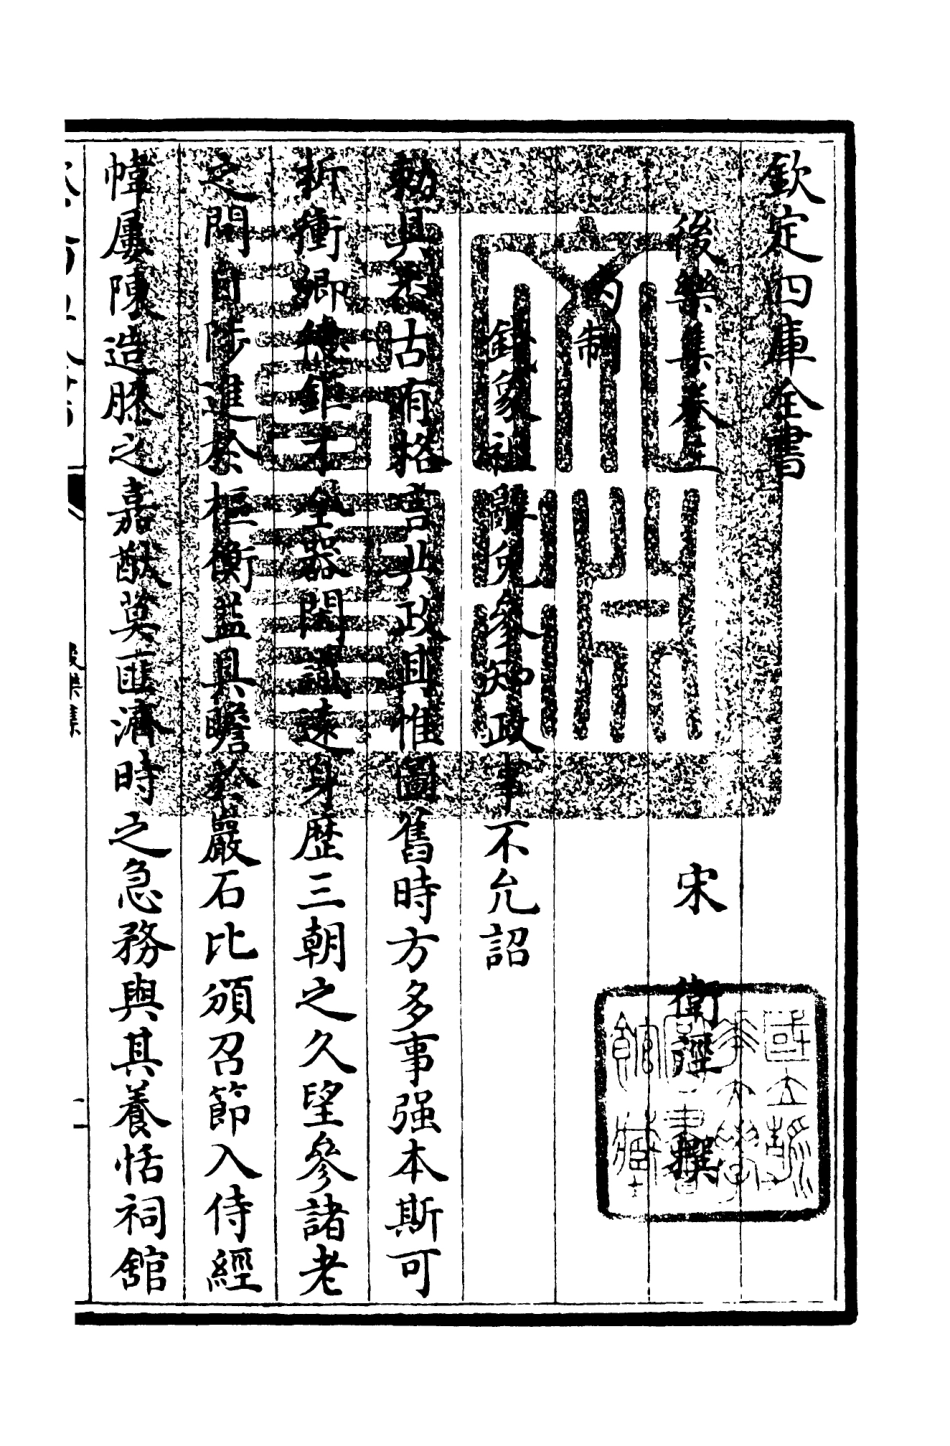 欽定四庫全書
後樂集卷三
宋 衛涇 撰
内制
錢象祖辭免參知政事不允詔
勅具悉古有格言共政具惟圖舊時方多事强本斯可
折衝卿德鉅才全器閎識遠身歷三朝之久望參諸老
之間自陟進於樞衡益具瞻於巖石比頒召節入侍經
幃屢陳造膝之嘉猷莫匪濟時之急務與其養恬祠舘
後樂集